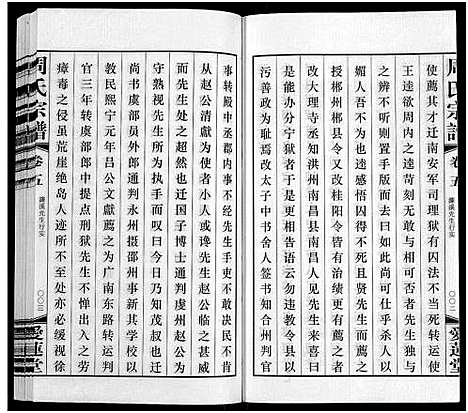 周氏宗譜
卷五
濂溪先生行实
〇〇二
使薦其才迁南安军司理有囚法不当死转运使
王逵欲深治之逵苛刻吏无敢相可否先生
之辨不听则置手版而去曰如此尚可仕乎杀人以
媚人吾不为也逵亦感悟囚得不死且贤先生荐之
授郴州郴县令又改桂阳令皆有治绩用荐者
改大理寺丞知洪州南昌县南昌人见先生来喜曰
是能办分宁狱者于是更相告语云勿违教令县以
污善政为耻焉改太子中书舍人签书知合州判官
事转殿中丞郡内事不经先生手吏不敢决民不肯
从赵公清献为使者小人或谗先生赵公临之甚威
而先生处之超然也迁国子博士通判虔州赵公来
守熟视先生所为执手而叹曰今日乃知茂叔也迁
尚书虞部员外郎通判永州摄邵州事新其学校以
教民熙宁元年吕公文献薦之为广南东路转运判
官三年转虞部郎中提点刑狱先生不惮出入之劳
瘴毒之侵虽荒崖绝岛人迹所不至处亦必缓视徐
周氏宗譜
卷五
濂溪先生行实
〇〇三
愛蓮堂